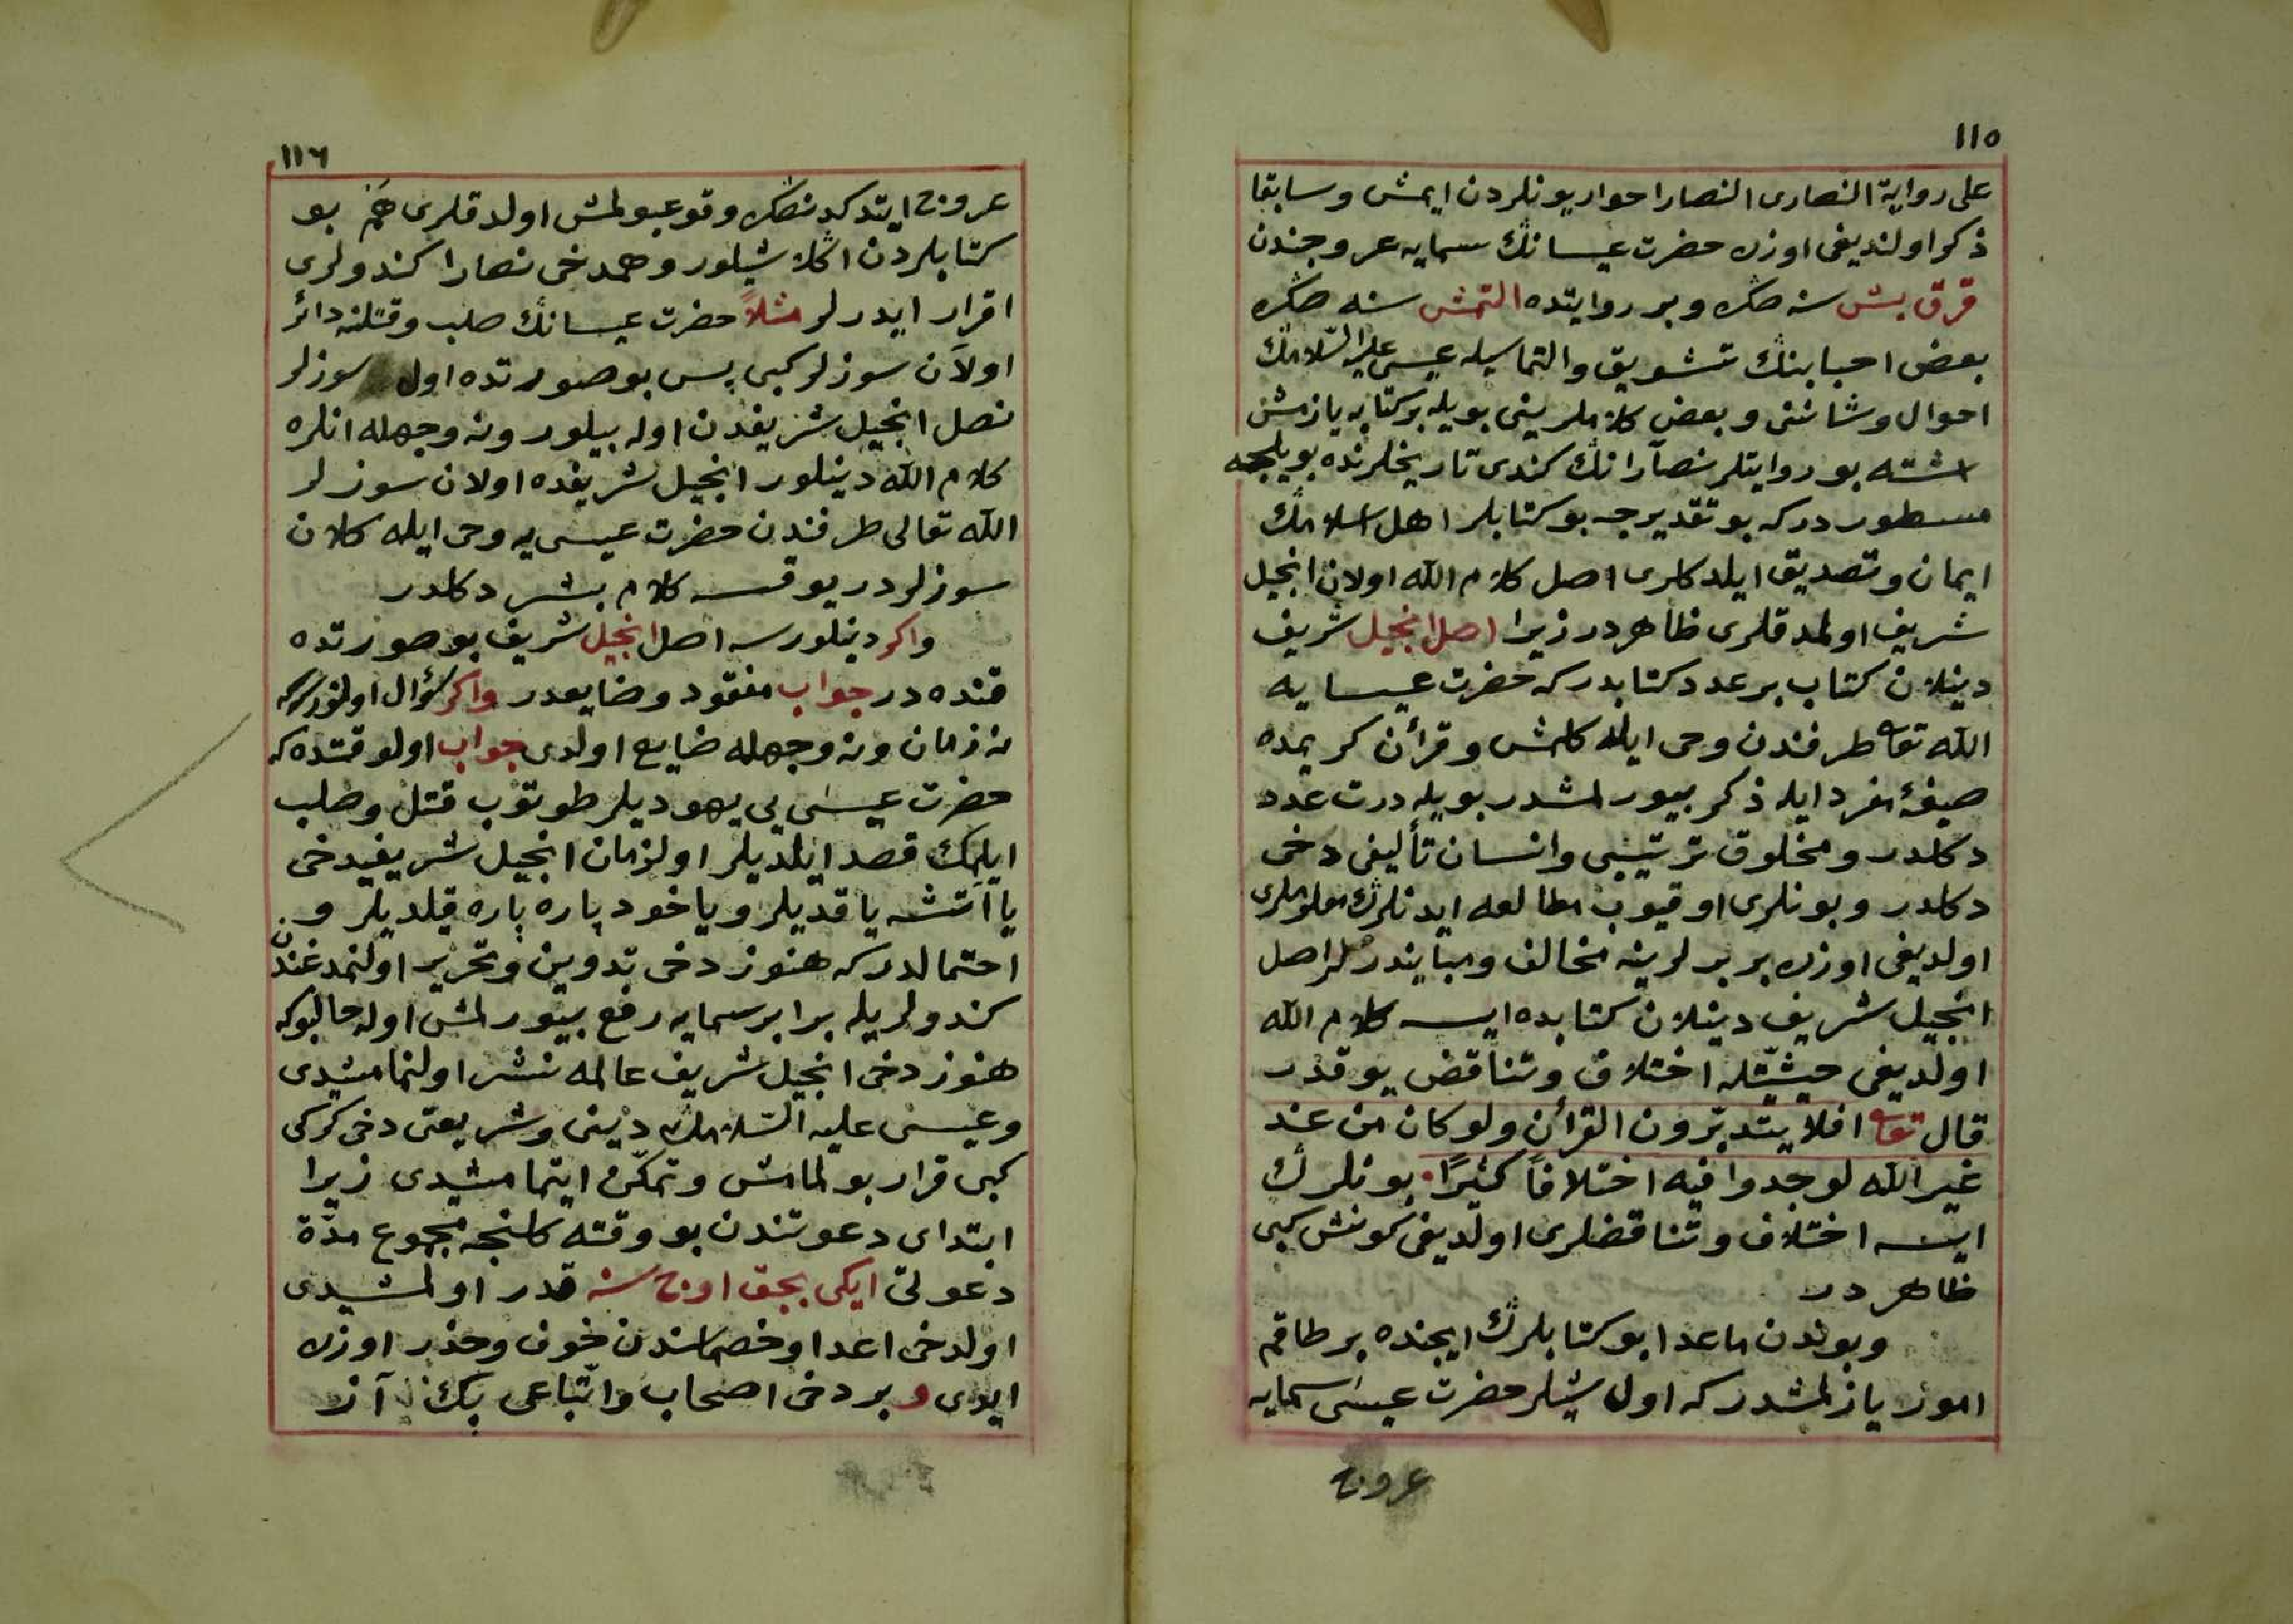 ١١٥
على رواية النصارى النصارا حواريونلردن ايمش و سابقا
ذكر اولنديغى اوزره حضرت عيسانڭ سمايه عروجندن
قرق بش سنه صڭره و بر روايتده التمش سنه صڭره
بعض احبابنڭ تشويق و التماسيله عيسى عليه السلامڭ
احوال و شاننى و بعض كلاملرينى بويله بر كتابه يازمش
اشته بو روايتلر نصارانڭ كندى تاريخلرنده بويلجه
مسطور دركه بو تقديرجه بو كتابلر اهل اسلامڭ
ايمان و تصديق ايلدكلرى اصل كلام الله اولان انجيل
شريف اولمدقلرى ظاهردر زيرا اصل انجيل شريف
دينلان كتاب بر عدد كتابدركه حضرت عيسايه
الله تعا طرفندن وحى ايله كلمش و قرأن كريمده
صيغهٔ مفرد ايله ذكر بيورلمشدر بويله درت عدد
دكلدر و مخلوق ترتيبى و انسان تأليفى دخى
دكلدر و بونلرى اوقيوب مطالعه ايدنلرڭ معلوملرى
اولديغى اوزره بر برلرينه مخالف و مبايندرلر اصل
انجيل شريف دينلان كتابده ايسه كلام الله
اولديغى حيثيتله اختلاف و تناقض يوقدر
قال تعا افلا يتدبرون القرأن ولو كان من عند
غير الله لوجدوا فيه اختلافاً كثيرًا بونلرڭ
ايسه اختلاف و تناقضلرى اولديغى كونش كبى
ظاهردر
و بوندن ماعدا بو كتابلرڭ ايچنده بر طاقم
امور يازلمشدركه اول شيلر حضرت عيسى سمايه
عروج
١١٦
عروج ايتدكدنصڭره وقوعبولمش اولدقلرى هم بو
كتابلردن اڭلاشيلور و همدخى نصارا كندولرى
اقرار ايدرلر مثلاً حضرت عيسانڭ صلب و قتلنه دائر
اولان سوزلر كبى پس بو صورتده اول سوزلر
نصل انجيل شريفدن اوله بيلور و نه وجهله انلره
كلام الله دينلور انجيل شريفده اولان سوزلر
الله تعالى طرفندن حضرت عيسى يه وحى ايله كلان
سوزلردر يوقسه كلام بشر دكلدر
واكر دينلورسه اصل انجيل شريف بو صورتده
قنده در جواب مفقود و ضايعدر واكر سؤال اولنورسه كه
نه زمان و نه وجهله ضايع اولدى جواب اولوقتده كه
حضرت عيسى يى يهوديلر طوتوب قتل و صلب
ايلمك قصد ايلديلر اولزمان انجيل شريفيدخى
يا آتشه ياقديلر و ياخود پاره پاره قلديلر و
احتمالدركه هنوز دخى تدوين و تحرير اولنمدغندن
كندولريله برابر سمايه رفع بيورلمش اوله حالبوكه
هنوز دخى انجيل شريف عالمه نشر اولنمامشيدى
و عيسى عليه السلامڭ دينى و شريعتى دخى كركى
كبى قرار بولمامش و تمكن ايتمامشيدى زيرا
ابتداى دعوتندن بو وقته كلنجه مجموع مدة
دعوتى ايكى بچق اوج سنه قدر اولمشيدى
اولدخى اعدا و خصماسندن خوف و حذر اوزره
ايدى و بر دخى اصحاب و اتباعى پك آز